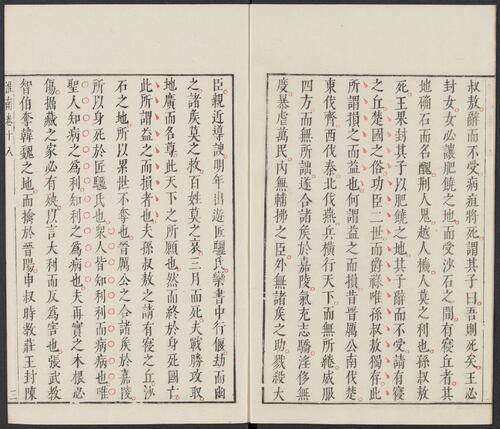 叔敖辭而不受病疽將死謂其子曰吾則死矣王必
封女女必讓肥饒之地而受沙石之間有寢丘者其
地确石而名醜荆人鬼越人禨人莫之利也孫叔敖
死王果封其子以肥饒之地其子辭而不受請有寢
之丘楚國之俗功臣二世而爵祿唯孫叔敖獨存此
所謂損之而益也何謂益之而損昔晉厲公南伐楚
東伐齊西伐秦北伐燕兵橫行天下而無所綣威服
四方而無所詘遂合諸侯於嘉陵氣充志驕淫侈無
度暴虐萬民內無輔拂之臣外無諸侯之助戮殺大
臣親近導諛明年出遊匠驪氏欒書中行偃劫而幽
之諸侯莫之救百姓莫之哀三月而死夫戰勝攻取
地廣而名尊此天下之所願也然而終於身死國亡
此所謂益之而損者也夫孫叔敖之請有寢之丘沙
石之地所以累世不奪也晉厲公之合諸侯於嘉陵
所以身死於匠驪氏也衆人皆知利利而病病也唯
聖人知病之為利知利之為病也夫再實之木根必
傷掘藏之家必有殃以言大利而反為害也張武教
智伯奪韓魏之地而擒於晉陽申叔時教莊王封陳
淮南卷十八
三